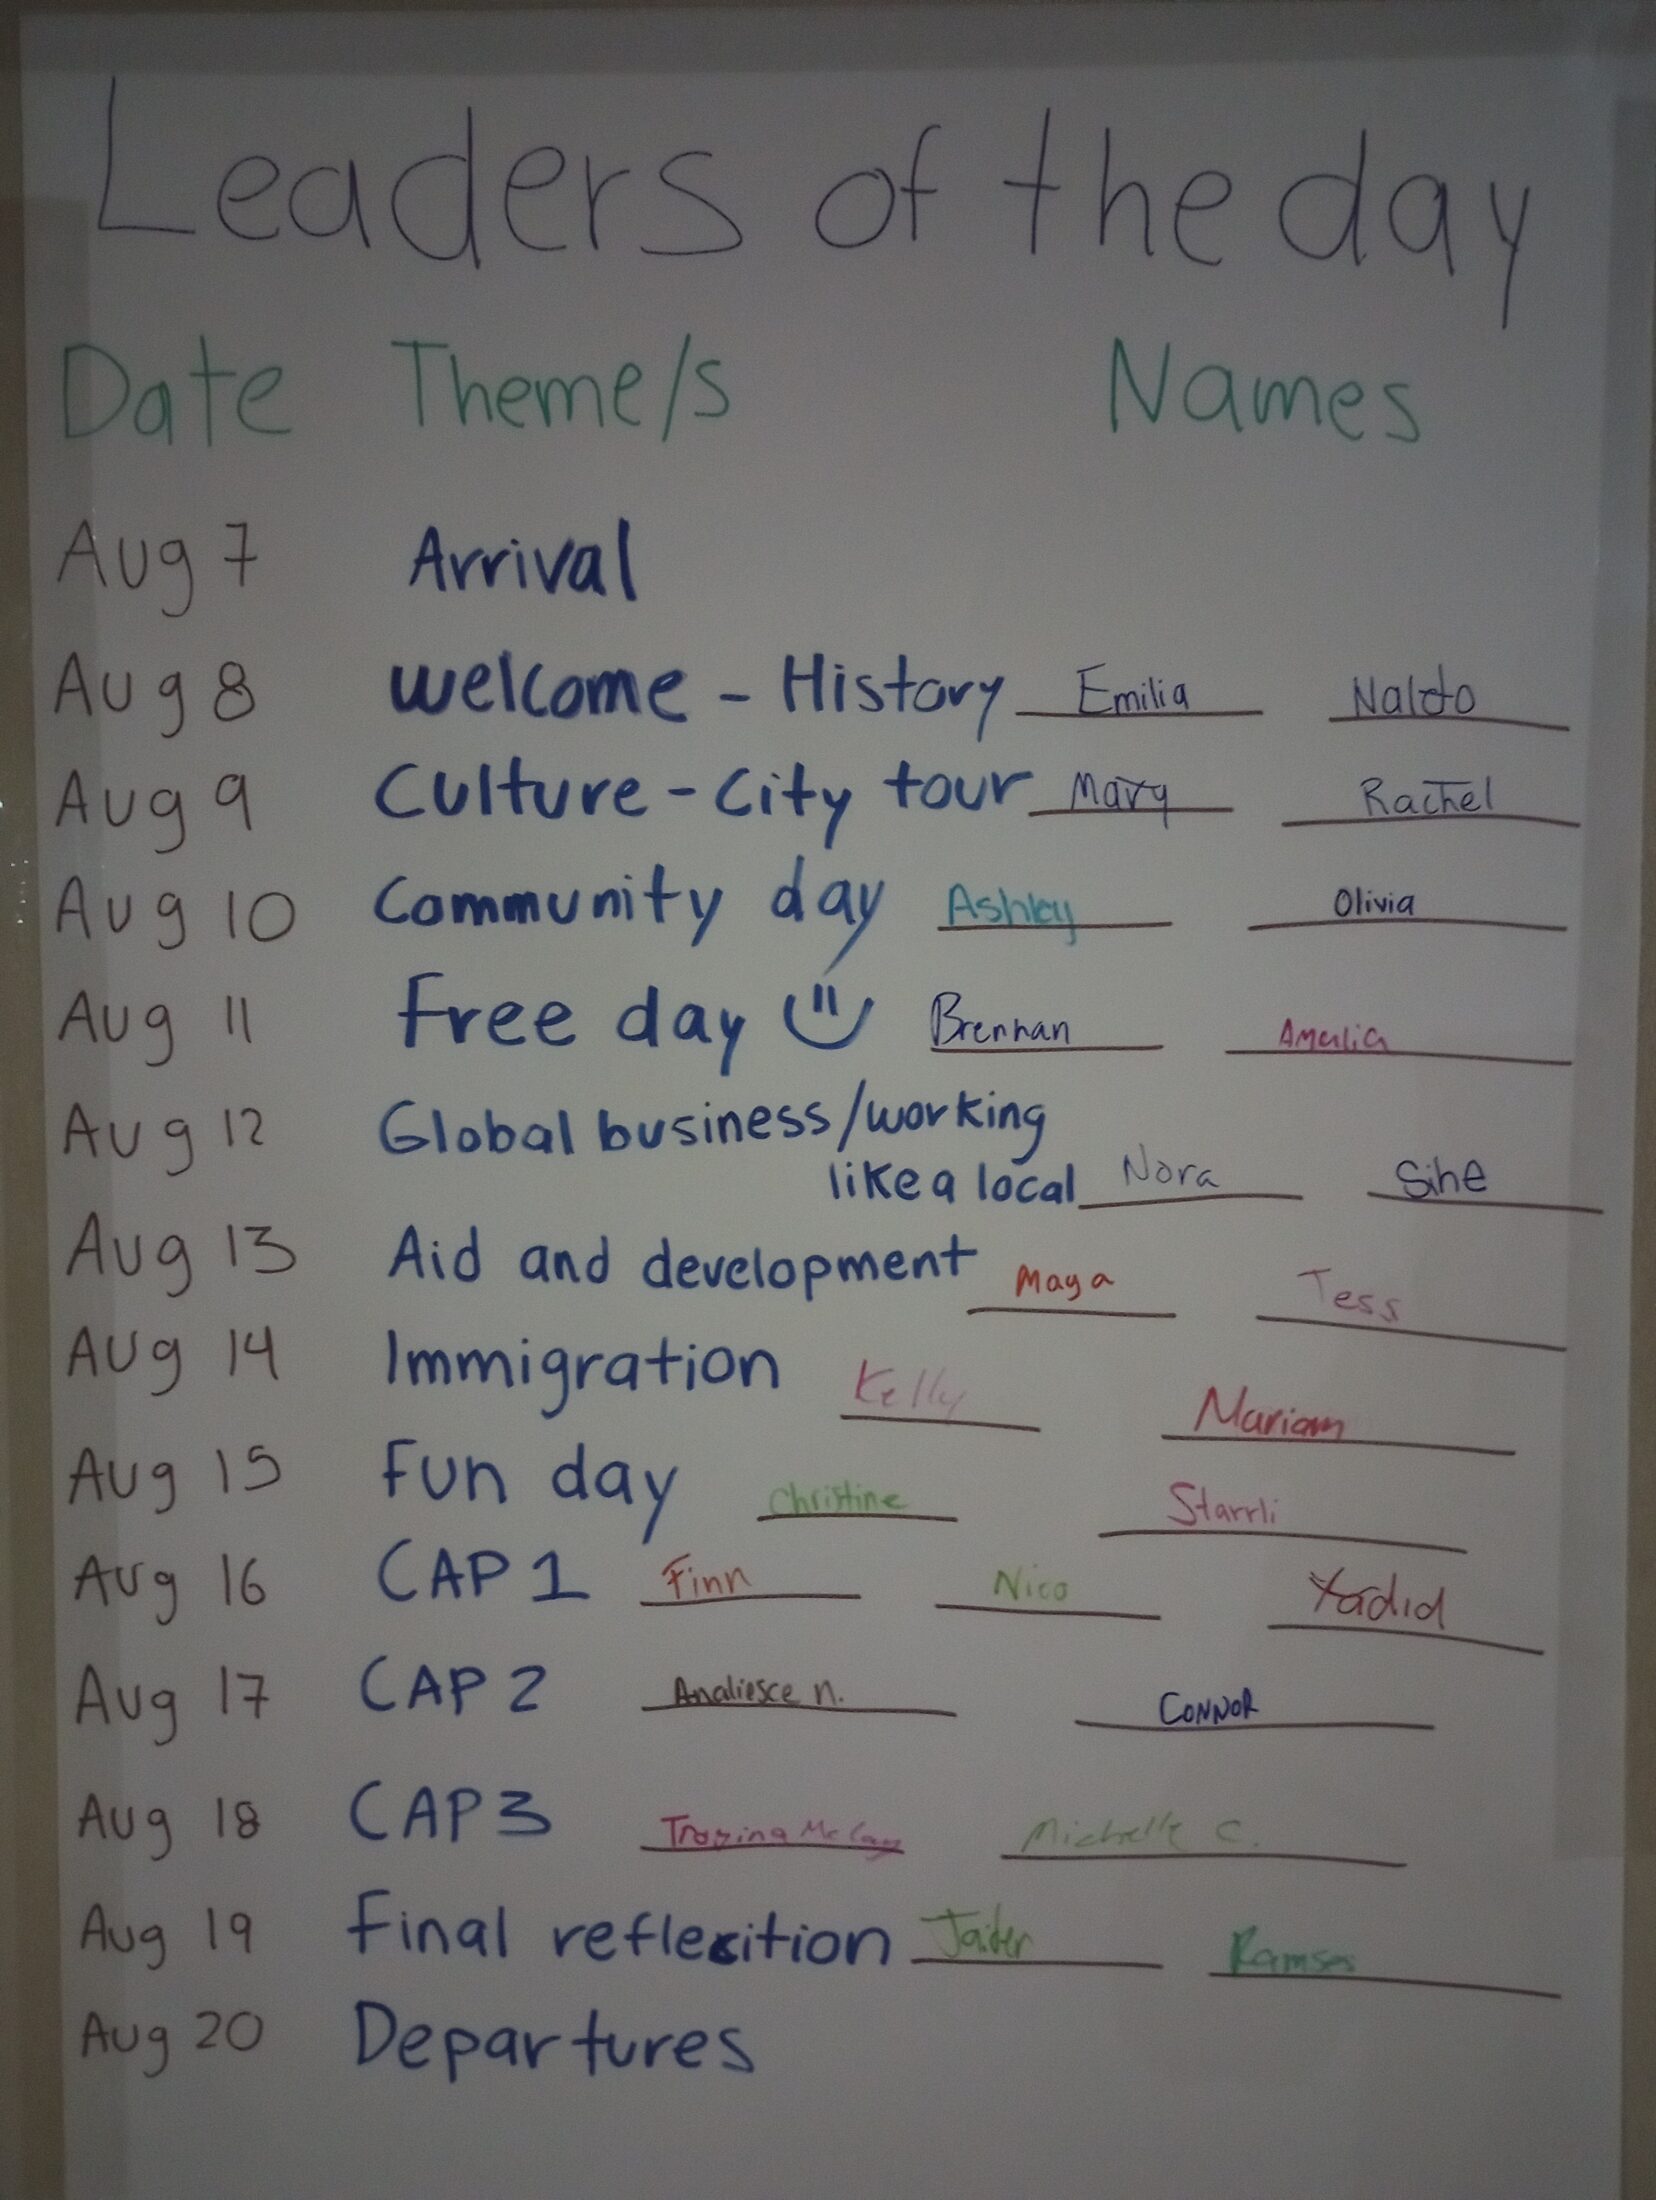 Leaders of the day
Date Theme/s Names
Aug 7 Arrival
Aug 8 Welcome - History Emilia Naldo
Aug 9 Culture - City tour Mary Rachel
Aug 10 Community day Ashley Olivia
Aug 11 Free day Brennan Amalia
Aug 12 Global business/working
like a local Nora Sihe
Aug 13 Aid and development Maya Tess
Aug 14 Immigration Kelly Mariam
Aug 15 Fun day Christine Starrli
Aug 16 CAP 1 Finn Nico Yadid
Aug 17 CAP 2 Analiesce n. CONNOR
Aug 18 CAP 3 Michelle C.
Aug 19 Final Jaider Ramses
Aug 20 Departures